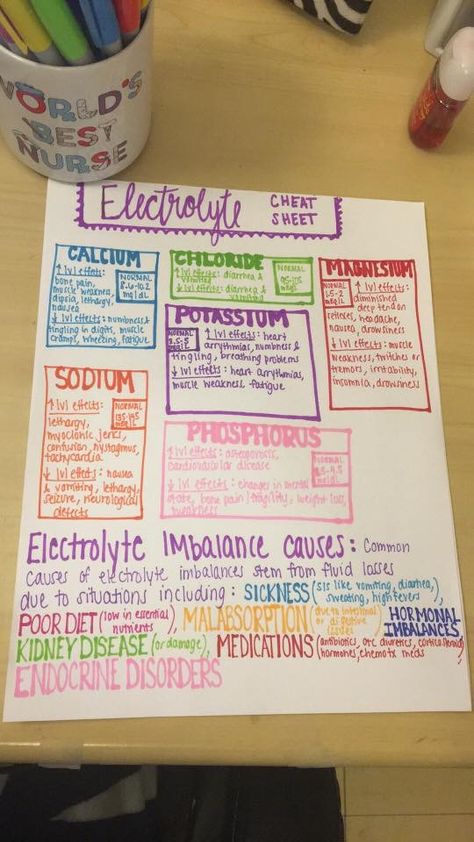 WORLD'S
BEST
NURSE
Electrolyte CHEAT
SHEET
CALCIUM
↑ lvl effects:
bone pain,
muscle weakness,
dipsia, lethargy,
nausea
↓ lvl effects: numbness &
tingling in digits, muscle
cramps, wheezing, fatigue
NORMAL
8.6-10.2
mg/dL
CHLORIDE
↑ lvl effects: diarrhea &
vomiting
↓ lvl effects: diarrhea &
vomiting
NORMAL
95-105
mEq/L
MAGNESIUM
↑ lvl effects:
diminished
deep tendon
reflexes, headache,
nausea, drowsiness
↓ lvl effects: muscle
weakness, twitches or
tremors, irritability,
insomnia, drowsiness
NORMAL
1.5-2
mEq/L
POTASSIUM
NORMAL
3.5-5
mEq/L
↑ lvl effects: heart
arrythmias, numbness &
tingling, breathing problems
↓ lvl effects: heart arrythmias,
muscle weakness, fatigue
SODIUM
↑ lvl effects:
lethargy,
myoclonic jerks,
confusion, nystagmus,
tachycardia
↓ lvl effects: nausea
& vomiting, lethargy,
seizure, neurological
defects
NORMAL
135-145
mEq/L
PHOSPHORUS
↑ lvl effects: osteoporosis,
cardiovascular disease
↓ lvl effects: changes in mental
state, bone pain/fragility, weight loss,
weakness
NORMAL
2.5-4.5
Electrolyte IMBALANCE CAUSES: Common
causes of electrolyte imbalances stem from fluid losses
due to situations including: SICKNESS (s/s like vomiting, diarrhea,
sweating, high fevers),
POOR DIET (low in essential
nutrients), MALABSORPTION (due to intestinal
or digestive
issues), HORMONAL
IMBALANCES,
KIDNEY DISEASE (or damage), MEDICATIONS (antibiotics, OTC diuretics, corticosteroid
hormones, chemo tx meds),
ENDOCRINE DISORDERS